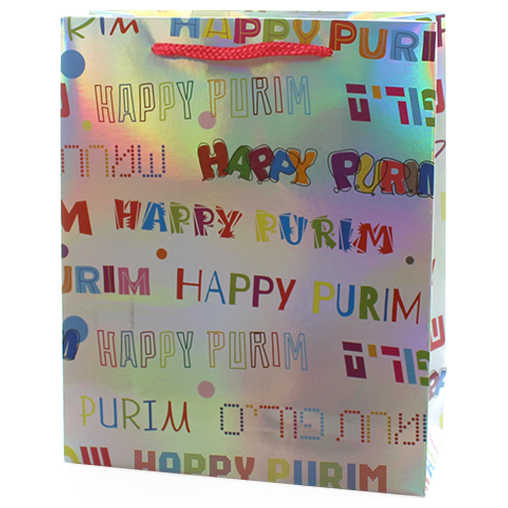 RIM HAPPY PURIM
HAPPY PURIM פורים
שמחת HAPPY PURIM
M HAPPY PURIM
URIM HAPPY PURIM
HAPPY PURIM פורים
PURIM שמחת פורים
HAPPY PURIM